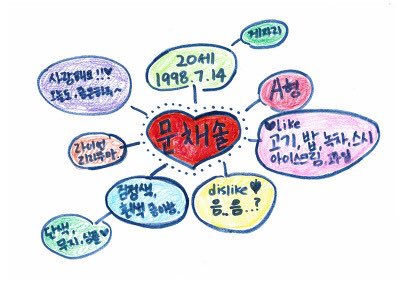 게자리
20세
1998.7.14
사랑해요!!♥
오늘도,좋은하루~
A형
문채솔
♥like
고기,밥,녹차,스시
아이스크림,과일
검정색,
흰색 좋아함.
dislike♥
음_음...?
단색,
무지,심플♥